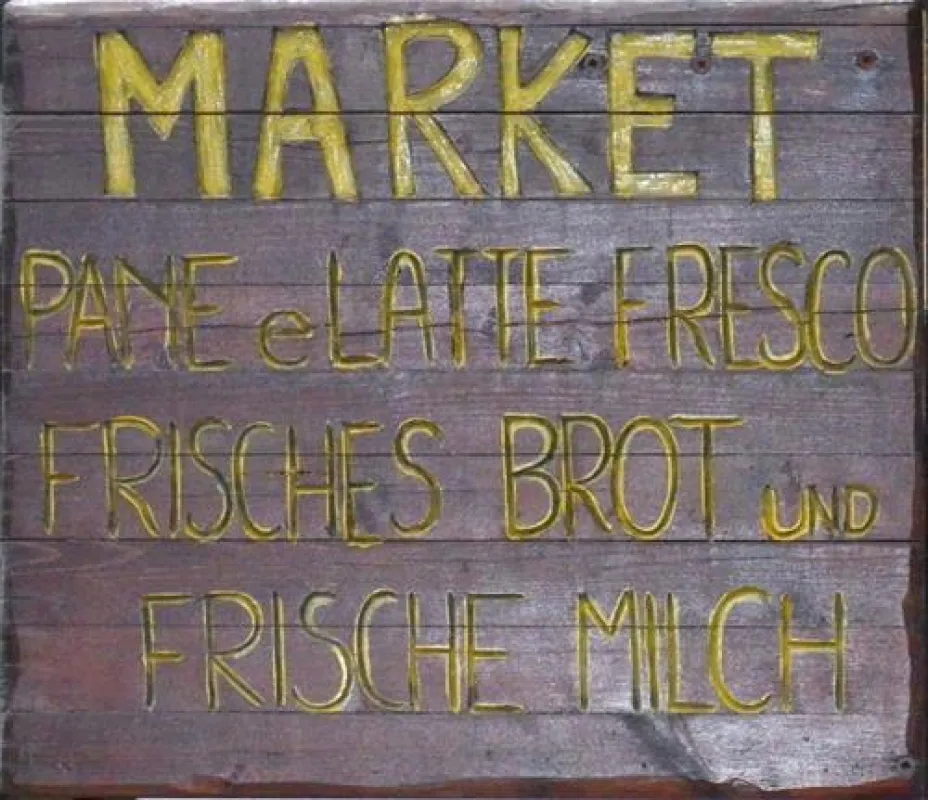 MARKET
PANE e LATTE FRESCO
FRISCHES BROT UND
FRISCHE MILCH